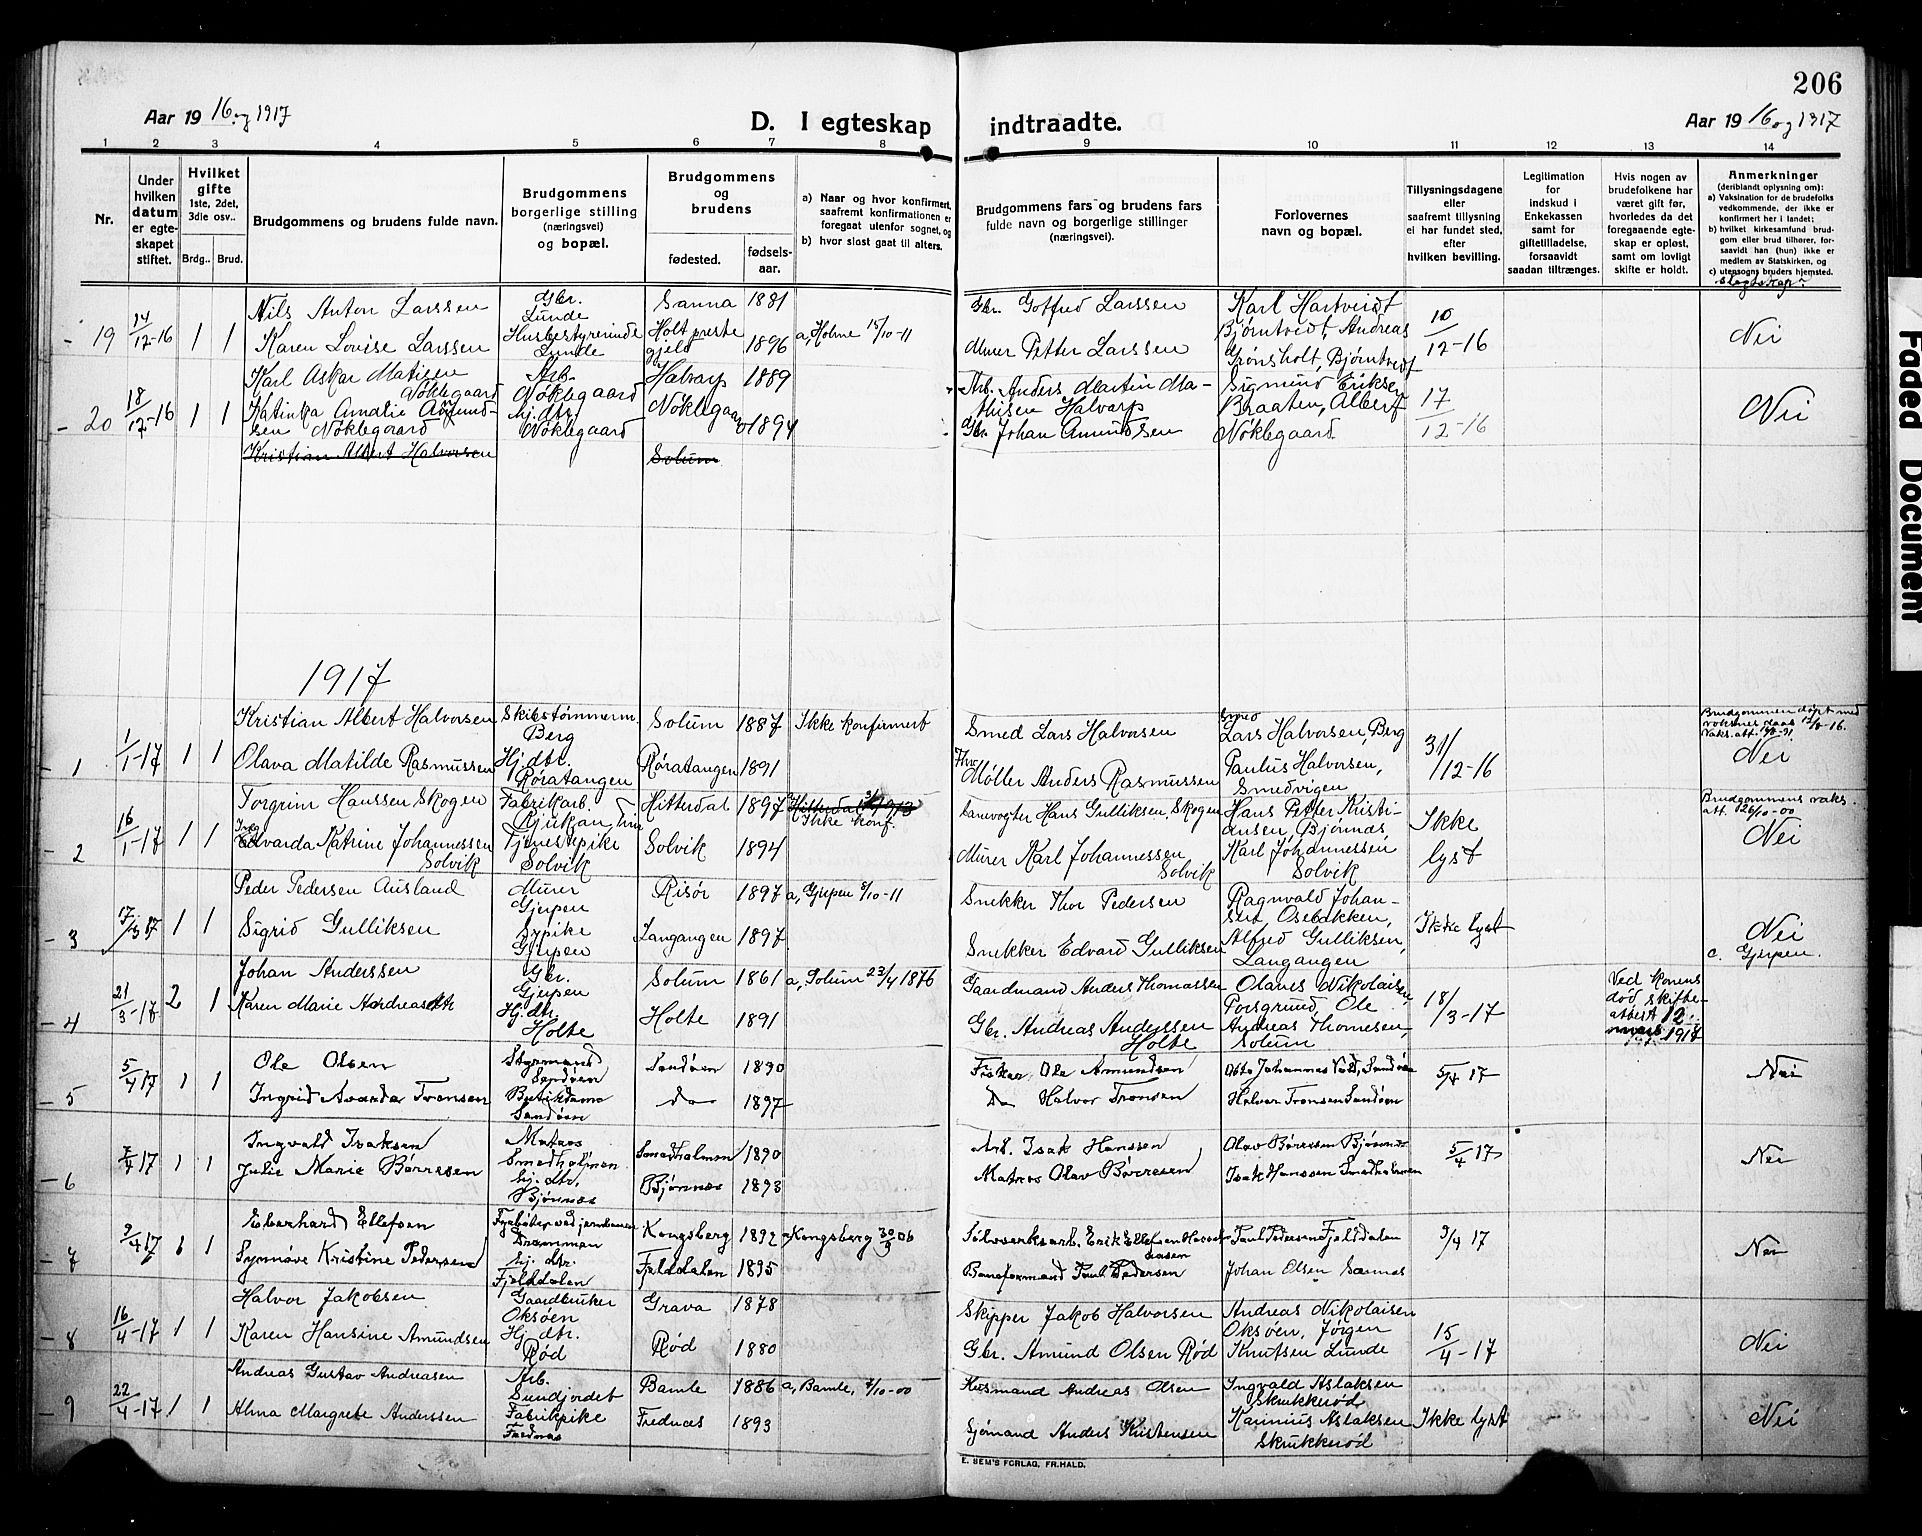 206
Aar 19 16 og 1917
D. I egteskap indtraadte.
Aar 19 16 og 1917
1 2 3 4 5 6 7 8 9 10 11 12 13 14
Nr.
Under hvilken datum er egteskapet stiftet.
Hvilket gifte 1ste, 2det, 3die osv..
Brdg.. Brud.
Brudgommens og brudens fulde navn.
Brudgommens borgerlige stilling (næringsvei) og bopæl.
Brudgommens og brudens
fødested.
fødselsaar.
a) Naar og hvor konfirmert, saafremt konfirmationen er foregaat utenfor sognet, og
b) hvor sidst gaat til alters.
Brudgommens fars og brudens fars fulde navn og borgerlige stillinger (næringsvei).
Forlovernes navn og bopæl.
Tillysningsdagene eller saafremt tillysning ei har fundet sted, efter hvilken bevilling.
Legitimation for indskud i Enkekassen samt for giftetilladelse, forsaavidt saadan tiltrænges.
Hvis nogen av brudefolkene har været gift før, hvorledes da det foregaaende egteskap er opløst, samt om lovligt skifte er holdt.
Anmerkninger
(deriblandt oplysning om):
a) Vaksination for de brudefolks vedkommende, der ikke er konfirmert her i landet;
b) hvilket kirkesamfund brudgom eller brud tilhører, forsaavidt han (hun) ikke er medlem av Statskirken, og
c) utensogns bruders hjemsted.
Slegtskap?
19 14/12-16 1 1 Nils Anton Larssen Gbr. Lunde Sanna 1881 Gbr. Gotfred Larssen Karl Hartvigt Bjørntvedt, Andreas 10/12-16 Nei
Karen Lovise Larssen Husbestyrerinde Lunde Holt prestegjeld 1896 a, Holme 15/10-11 Murer Petter Larssen Grønsholt, Bjørntvedt
20 18/12-16 1 1 Karl Askar Matisen Nøklegaard Arb. Nøklegaard Halvarp 1889 Arb. Anders Martin Mathisen Halvarp Sigmund Eriksen Braaten, Albert 17/12-16 Nei
Katinka Amalie Amundsen Nøklegaard hj. dtr. Nøklegaard Nøklegaard 1894 Gbr. Johan Amundsen Nøklegaard.
Kristian Albert Halvorsen Solum
1917
1 1/1-17 1 1 Kristian Albert Halvorsen Skibstømmerm. Berg Solum 1887 Ikke konfirmert Smed Lars Halvorsen Smed Lars Halvorsen, Berg 31/12-16 Brudgommen døpt med Nei
Olava Matilde Rasmussen Hj. dtr. Røratangen Røratangen 1891 Møller Anders Rasmussen Paulus Halvorsen, Smedvigen
2 16/1-17 1 1 Torgrim Hanssen Skogen Fabrikarb. Rjukan Hitterdal 1897 Hitterdal 1913 Ikke konf. Hans Gulliksen, Skogen Hans Petter Kristiansen, Bjønnes, Ikke lyst Brudgommens vaks. att. 26/10-00 Nei
Edvarda Katrine Johannessen Solvik Tjenestepike Solvik Solvik 1894 Murer Karl Johannessen Solvik Karl Johannessen Solvik
3 17/3 17 1 1 Peder Pedersen Ausland Murer Gjerpen Risør 1897 a, Gjerpen 8/10-11 Snekker Thor Pedersen Ragnvald Johansen Osebakken, Ikke lyst Nei
Sigrid Gulliksen Sypike Gjerpen Langangen 1897 Snekker Edvard Gulliksen Alfred Gulliksen, Langangen c. Gjerpen.
4 21/3-17 2 1 Johan Anderssen Gbr. Gjerpen Solum 1861 a, Solum 23/4 1876 Gaardmand Anders Thomassen Olaves Nikolaisen, Porsgrund, Ole 18/3-17 Ved konens død, skifteattest 12.
Karen Marie Andreasdtr Hj. dtr. Holte Holte 1891 Gbr. Andreas Anderssen Holte Andreas Thomesen, Solum
5 5/4 17 1 1 Ole Olsen Styrmand Sandøen Sandøen 1890 Fisker, Ole Amundsen Johannes Sandøen 5/4 17 Nei
Ingrid Avarda Tronsen Butikdame Sandøen do 1897 Do Halvor Tronsen Halvor Tronsen Sandøen
6 7/4 17 1 1 Ingvald Isaksen Matros Smedholmen Smedholmen 1890 Arb. Isak Hanssen Olav Børresen Bjønnes 5/4 17 Nei
Julie Marie Børresen hj. dtr. Bjønnes Bjønnes 1893 Matros Olav Børresen Isak Hanssen Smedholmen
7 9/4 17 1 1 Eberhard Ellefsen Fyrbøter ved jernbanen Drammen Kongsberg 1892 Kongsberg 30/9 06 Sølvverksarb. Erik Ellefsen Paul Pedersen Fjelddalen 9/4 17 Nei
Synnøve Kristine Pedersen hj. dtr. Fjelddalen Fjelddalen 1895 Baneformand Paul Pedersen Johan Olsen Sannes
8 16/4-17 1 1 Halvor Jakobsen Gaardbruker Oksøen Grava 1878 Skipper Jakob Halvorsen Andreas Nikolaisen Oksøen, Jørgen 15/4-17 Nei
Karen Hansine Amundsen Hj. dtr. Rød Rød 1880 Gbr. Amund Olsen Rød Knutsen Lunde
9 22/4-17 1 1 Andreas Gustav Andreasen Arb. Sundjordet Bamle 1886 a, Bamle, 7/10-00 Husmand Andreas Olsen Ingvald Aslaksen Skrukkerød Ikke lyst Nei
Alma Margrete Anderssen Fabrikpike Frednes Frednes 1893 Sjømand Anders Kristensen Karinius Aslaksen Skrukkerød
E. SEM'S FORLAG, FR.HALD.
Faded Document